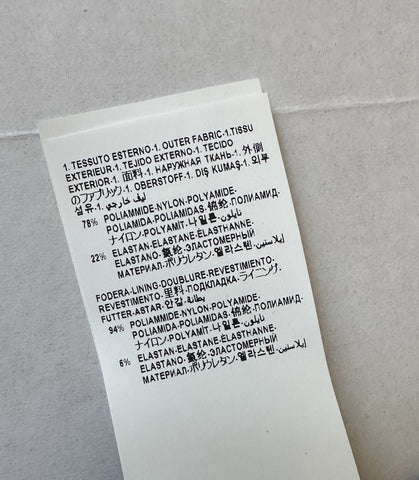 1. TESSUTO ESTERNO-1. OUTER FABRIC-1.TISSU
EXTERIEUR-1. TEJIDO EXTERNO-1. TECIDO
EXTERIOR-1. 面料-1. НАРУЖНАЯ ТКАНЬ-1. 外側
のファブリック-1. OBERSTOFF-1. DIŞ KUMAŞ-1. 외부
섬유-1. ليف خارجي
78% POLIAMMIDE-NYLON-POLYAMIDE-
POLIAMIDA-POLIAMIDAS-锦纶-ПОЛИАМИД-
ナイロン-POLYAMİT-나일론-نايلون
22% ELASTAN-ELASTANE-ÉLASTHANNE-
ELASTANO-氨纶-ЭЛАСТОМЕРНЫЙ
МАТЕРИАЛ-ポリウレタン-엘라스텐-إيلاستين
FODERA-LINING-DOUBLURE-REVESTIMIENTO-
REVESTIMENTO-里料-ПОДКЛАДКА-ライニング-
FUTTER-ASTAR-안감-بطانة
94% POLIAMMIDE-NYLON-POLYAMIDE-
POLIAMIDA-POLIAMIDAS-锦纶-ПОЛИАМИД-
ナイロン-POLYAMİT-나일론-نايلون
6% ELASTAN-ELASTANE-ÉLASTHANNE-
ELASTANO-氨纶-ЭЛАСТОМЕРНЫЙ
МАТЕРИАЛ-ポリウレタン-엘라스텐-إيلاستين